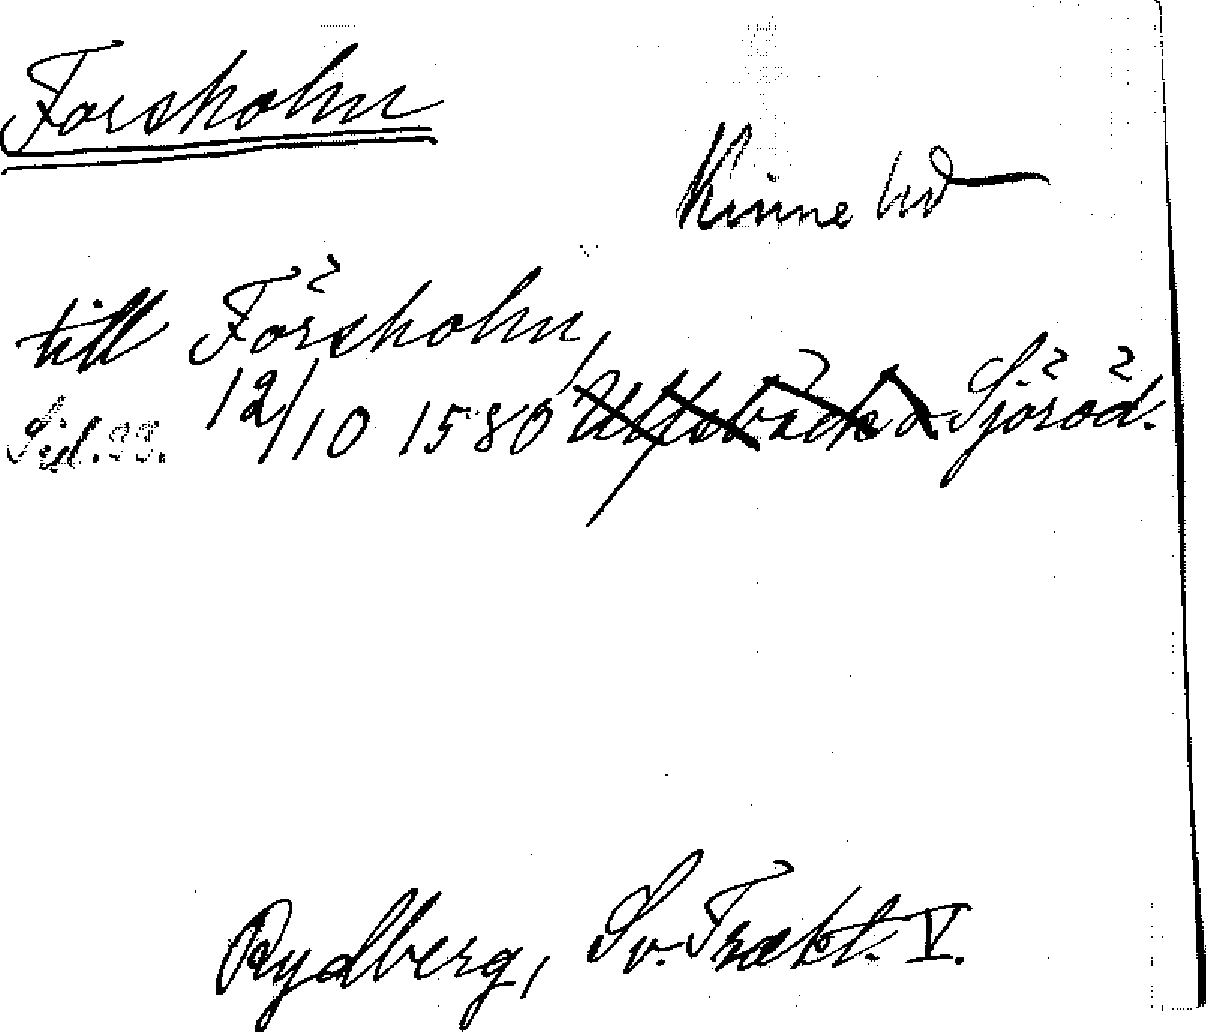 Forsholm
Kinne hd
till Försholm,
Sid. 33. 12/10 1580 Ulfsbäck o. Sjöröd.
Rydberg, Sv. Trakt. V.